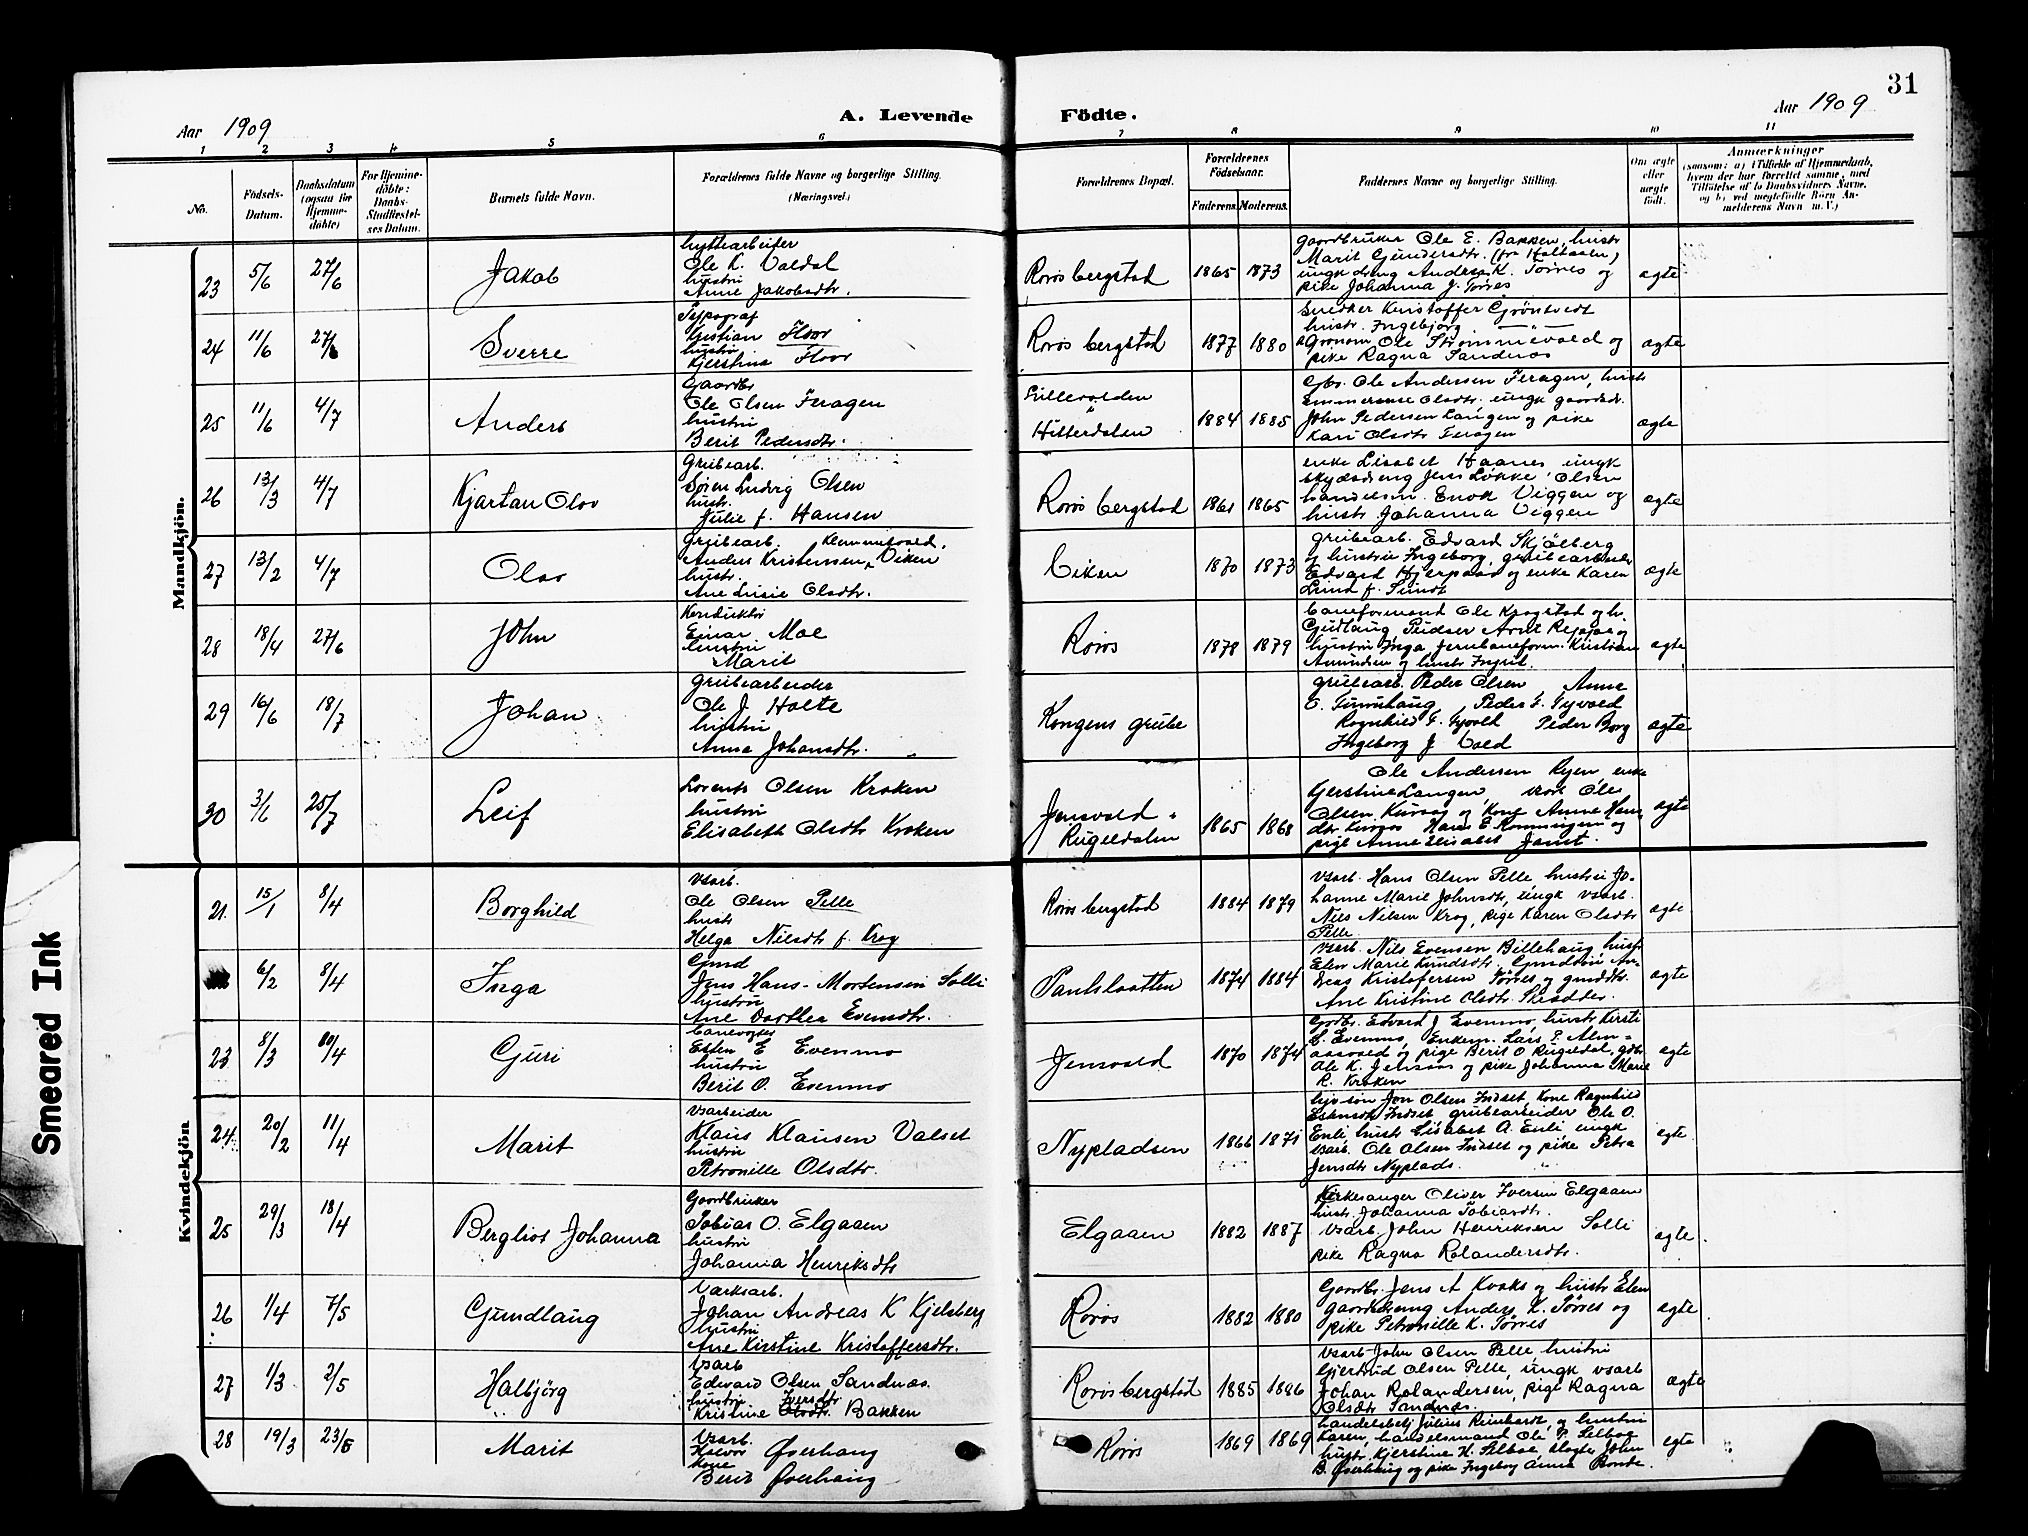 31
Aar 1909
A. Levende
Födte.
Aar 1909
1 2 3 4 5 6 7 8 9 10 11
No.
Födsels-
Datum.
Daabsdatum
(ogsaa för
Hjemme-
döbte)
For Hjemme-
döbte:
Daabs-
Stadfæstel-
ses Datum.
Barnets fulde Navn.
Forældrenes fulde Navne og borgerlige Stilling.
(Næringsvei.)
Forældrenes Bopæl.
Forældrenes
Födselsaar.
Faderens. Moderens.
Faddernes Navne og borgerlige Stilling.
Om ægte
eller
uægte
födt.
Anmærkninger
(saasom: a) i Tilfælde af Hjemmedaab,
hvem der har forrettet samme, med
Tilföielse af to Daabsvidners Navne,
og b) ved uægtefödte Börn An-
melderens Navn m. V.)
Mandkjön.
23 5/6 27/6 Jakob
hyttearbeiter
Ole K. Valdal
hustru
Anne Jakobsdtr.
Røros bergstad 1865 1873
gaardbruker Ole E. Bakken, hustr
Marit Gundersdtr. (fra Holtaalen)
ungk dreng Anders K. Tørres og
pike Johanna J. Tørres
ægte
24 11/6 27/6 Sverre
Typograf
Kristian Floor
hustru
Kjerstina Floor
Røros bergstad 1877 1880
Snedker Kristoffer Grøntvedt
hustr. Ingebjørg —"—
Agronom Ole Strømmevold og
pike Ragna Sandnæs
ægte
25 11/6 4/7 Anders
Gaardbr
Ole Olsen Feragen
hustru
Berit Pedersdtr.
Lillevolden
Hitterdalen 1884 1885
Gbr. Ole Andersen Feragen, hustr
Emmerense Olsdtr. ungk gaardsdr.
John Pedersen Langen og pike
Kari Olsdtr Feragen
ægte
26 13/3 4/7 Kjartan Olav
Grubearb.
Søren Ludvig Olsen
hustr.
Julie f. Hansen
Røros bergstad 1861 1865
enke Lisabet Haanes, ungk
skydsdreng Jens Løkke Olsen
handelsm. Enok Viggen og
hustr. Johanna Viggen
ægte
27 13/2 4/7 Olav
Grubearb. Klemmetvold.
Anders Kristensen, Viken
hustr.
Ane Lisie Olsdtr.
Viken 1870 1873
grubearb. Edvard Skjølberg
og hustru Ingeborg, grubearbeider
Edvard Hjerpaas og enke Karen
Lund f. Sundt
ægte
28 18/4 27/6 John
Konduktør
Einar Moe
hustru
Marit
Røros 1878 1879
baneformand Ole Krogstad og h.
Gudlaug Pudser Arnt
hustru Inga Jernbaneform. Kristian
Amundsen og hustr. Ingrid.
ægte
29 16/6 18/7 Johan
Grubearbeider
Ole J. Holte
hustru
Anna Johansdtr.
Kongens grube
grubearb. Peder Olsen Anne
E. Peder F. Gyvold
Ragnhild F. Gyvold Peder Borg
Ingeborg J. Vold
ægte
30 3/6 25/7 Leif
Lorents Olsen Kroken
hustru
Elisabeth Olsdtr Kroken
Jensvold
Rugeldalen 1865 1868
Ole Andersen Ryen, enke
Gjerstine Langen Ole
Olsen Kuraas og Kone Anne Hans
dtr Kuraas Hans E Ronningen og
pige Anne Elisabet Jamt.
ægte
Kvindekjön
21. 15/1 8/4 Borghild
Vsarb.
Ole Olsen Pelle
hustr
Helga Nilsdtr f. Krog
Røros bergstad 1884 1879
Vsarb. Hans Olsen Pelle hustru Jo-
hanne Marie Johnsdtr, ungk vsarb.
Nils Nilsen Krog, pige Karen Olsdtr
Pelle.
ægte
6/2 8/4 Inga
Gmd
Jens Hans-Mortensen Solli
hustru
Ane Dorthea Evensdtr.
Paulslaatten 1874 1884
Vsarb. Nils Evensen Billehaug hustr
Elen Marie Knudsdtr. An-
dreas Kristofersen Tørres og gmddtr.
Ane Kristine Olsdtr.
ægte
23 8/3 10/4 Guri
Banevogter
Esten E Evenmo
hustru
Berit O. Evenmo
Jensvold 1870 1874
Grdbr. Edvard J Evenmo, hustr Kirsti
E. Evenmo, Enkem. Lars P. Alm-
aasvold og pige Berit O Rugeldal, gdbr
Ole K. Jensaas og pike Johanna Marie
R. Kroken
ægte
24 20/2 11/4 Marit
Vsarbeider
Klaus Klausen Valset
hustru
Petronille Olsdtr.
Nypladsen 1866 1871
Jon Olsen Indset, Kone Ragnhild
Estensdtr Indset, grubearbeider Ole O.
Enli hustr Lisabet A. Enli ungk
vsarb. Ole Olsen Indset og pike Petra
Jensdtr Nyplads.
ægte
25 29/3 18/4 Bergliot Johanna
Gaardbruker
Tobias O. Elgaaen
hustru
Johanna Henriksdtr
Elgaaen 1882 1887
Kirkesanger Oliver Iversen Elgaaen
hustr. Johanna Tobiasdtr.
Vsarb. John Henriksen Solli
pike Ragna Rolandersdtr.
ægte
26 1/4 7/5 Gundlaug
Værksarb.
Johan Andreas K Kjelsberg
hustru
Ane Kirstine Kristoffersdtr.
Røros 1882 1880
Gaardbr. Jens A Kvaks og hustr Elen
gaardsdreng Anders K. Tørres og
pike Petronille K. Tørres
ægte
27 1/3 2/5 Halbjørg
Vsarb
Edevard Olsen Sandnæs.
hustru Iversdtr
Kristine Olsdtr. Bakken
Røros bergstad 1885 1886
Vsarb John Olsen Pelle hustru
Gjertrud Olsen Pelle, ungk vsarb
Johan Rolandersen, pige Ragna
Olsdtr Sandnæs.
ægte
28 19/3 23/5 Marit
Vsarb.
Halvor Øverhaug
Kone
Berit Øverhaug
Røros 1869 1869
handelsbetj Julius Reinhardt og hustru
Karen, handelsmand Ole P. Selboe
hustr. Kjerstine H. Selboe slagter John
B. Øverhaug og pike Ingeborg Anna Bonde.
ægte
Smeared Ink